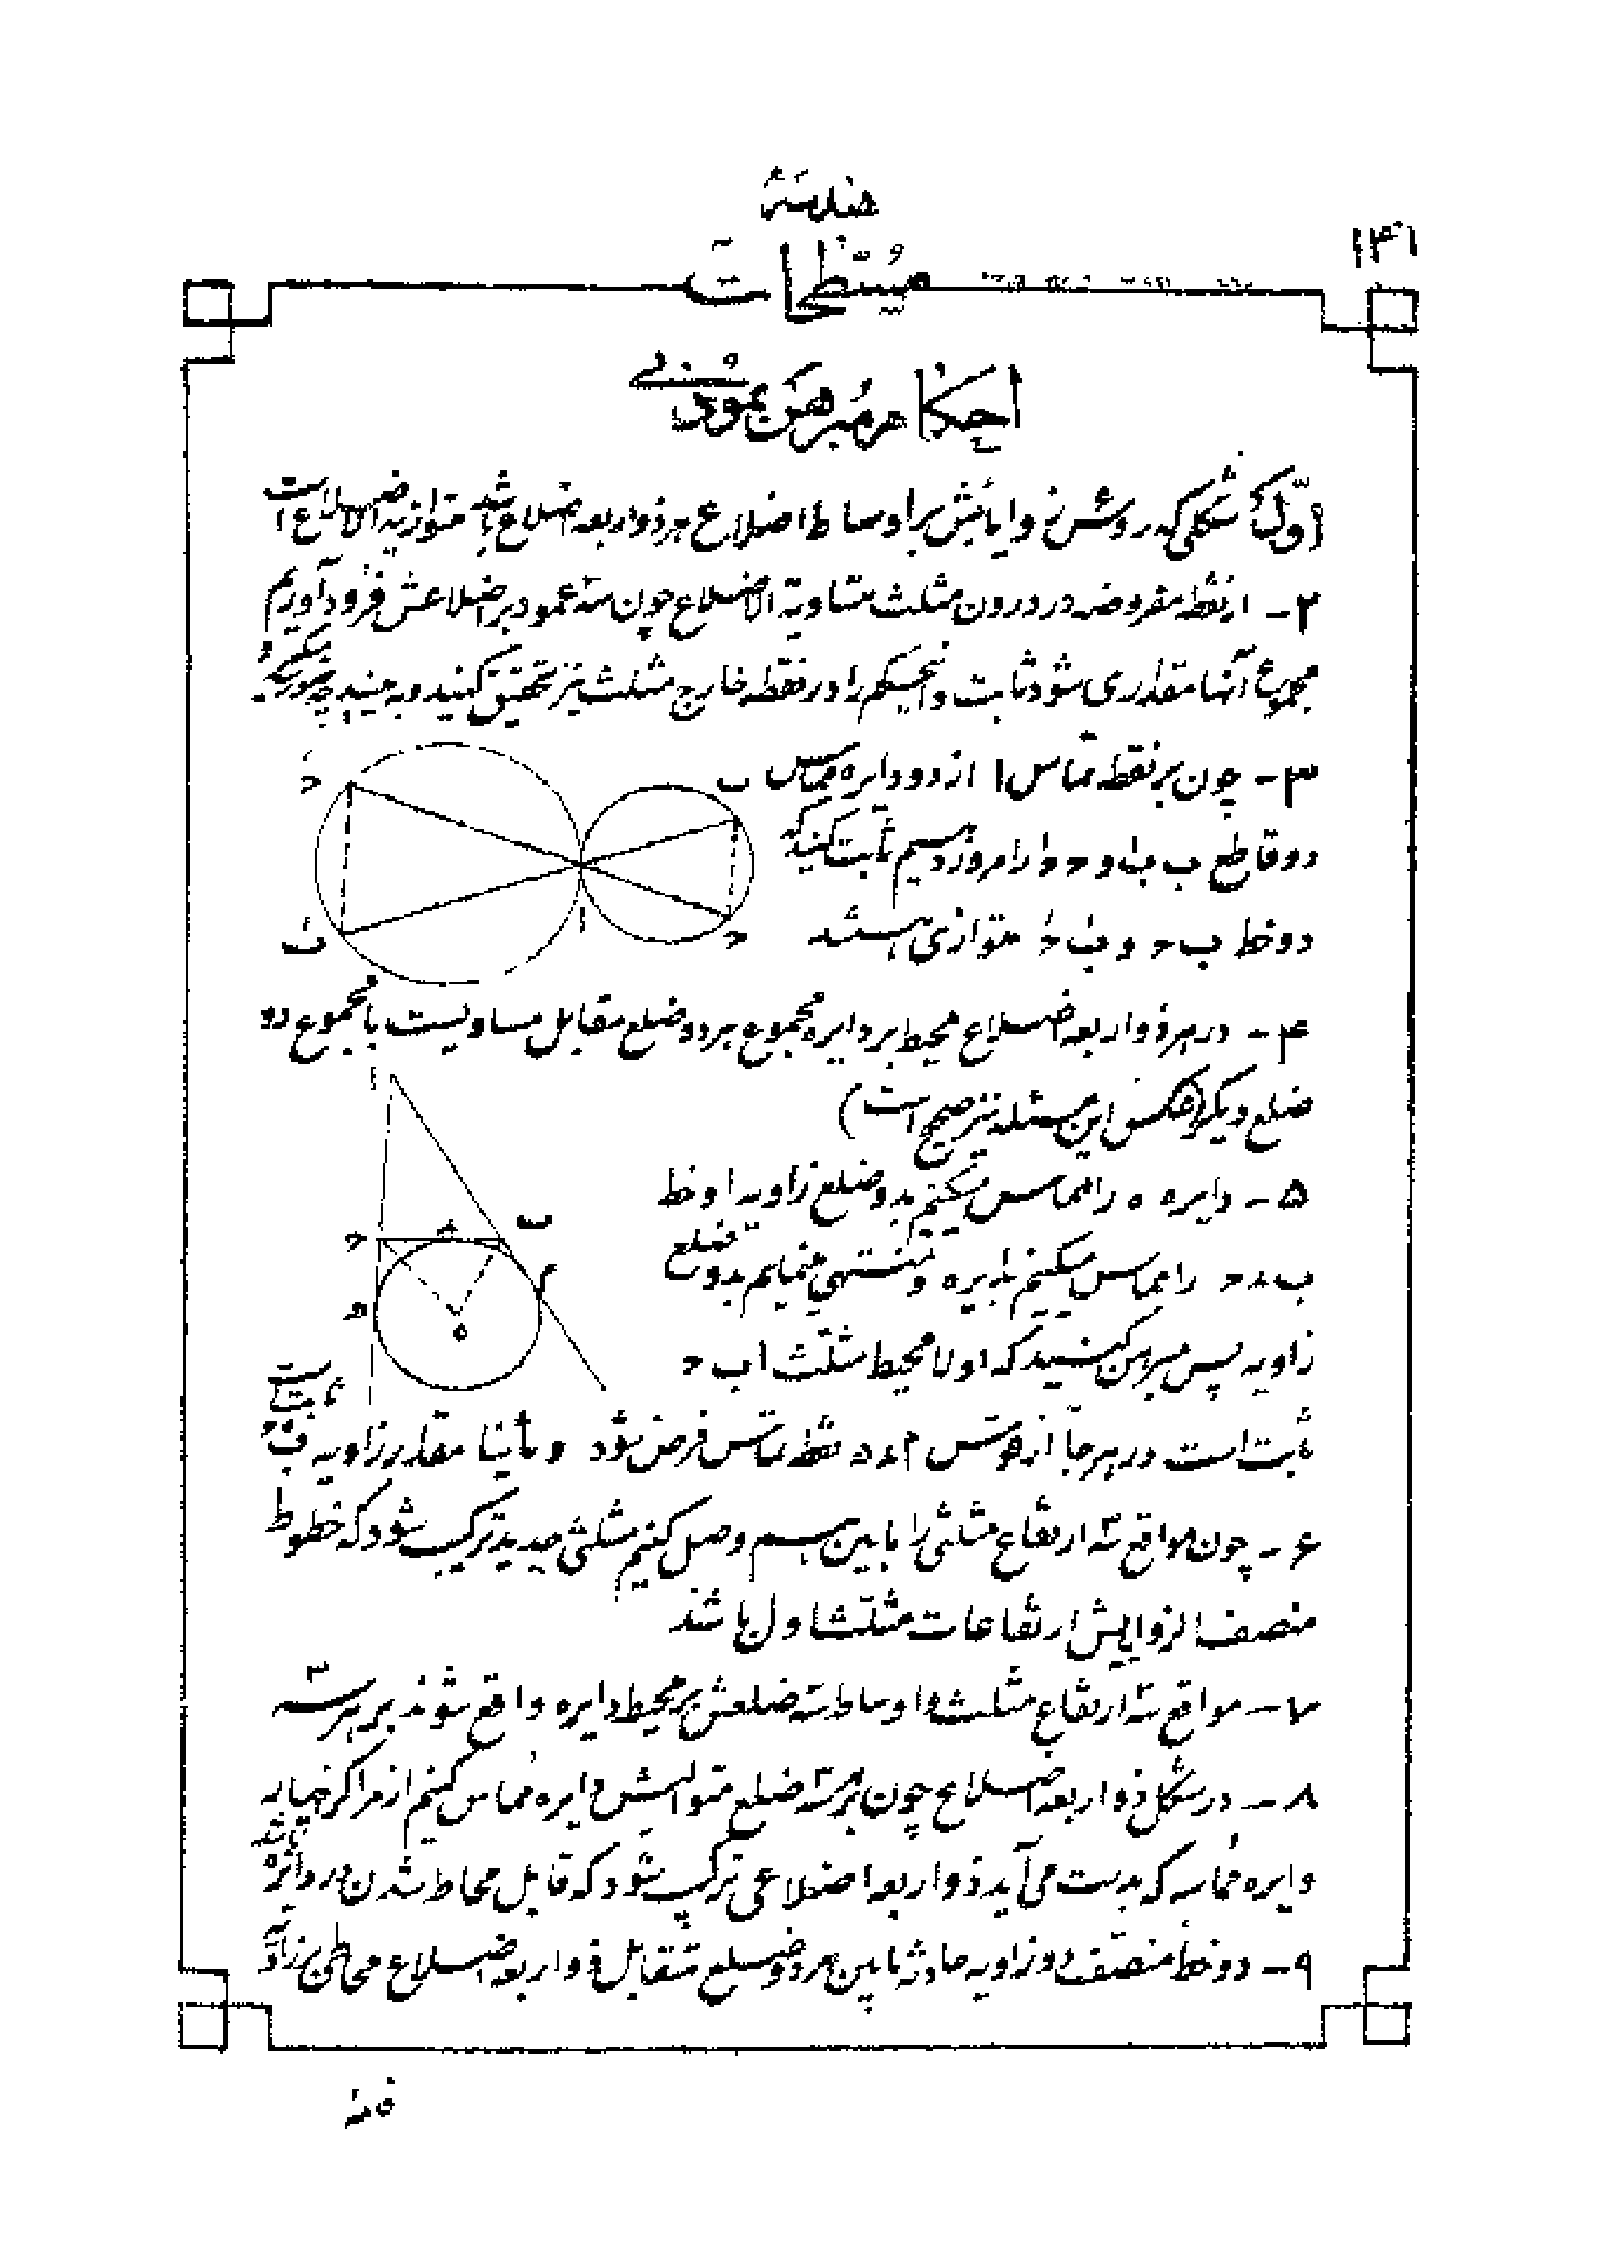 هندسهٔ
۱۴۱
مسطحات
احکام مبرهن نمودنی
اوّل شکلی که رؤس زوایایش بر اوساط اضلاع هر ذو اربعه اضلاع باشد متوازیه الاضلاع است
۲ـ از نقطه مفروضه در درون مثلث متساویة الاضلاع چون سه عمود بر اضلاعش فرود آوریم
مجموع آنها مقداری شود ثابت و اینحکم را در نقطه خارج مثلث نیز تحقیق کنید و به بینید چه میکند
۳ـ چون بر نقطه تماس ا از دو دایره مماس ب
دو قاطع ب بَ و حـ حَـ را مرور دهیم ثابت کنید که
دو خط ب حـ و بَ حَـ متوازی هستند
حَـ
بَ
حـ
۴ـ در هر ذو اربعه اضلاع محیط بر دایره مجموع هر دو ضلع مقابل مساویست با مجموع دو
ضلع دیگر (عکس این مسئله نیز صحیح است)
۵ـ دایره ه را مماس میکنیم بدو ضلع زاویه ا و خط
ب د حـ را مماس میکنیم بدایره و منتهی مینمایم بدو ضلع
زاویه پس مبرهن کنید که اولا محیط مثلث ا ب حـ
حـ ب م ه
ثابت است در هر جا از قوس م د نقطه تماس فرض شود و ثانیا مقدار زاویه ب ه حـ ثابت است
۶ـ چون مواقع سه ارتفاع مثلثی را بابین هم وصل کنیم مثلثی جدید ترکیب شود که خطوط
منصف الزوایایش ارتفاعات مثلث اول باشند
۷ـ مواقع سه ارتفاع مثلث و اوساط سه ضلعش بر محیط دایره واقع شوند بر هر سه
۸ـ در شکل ذو اربعه اضلاع چون بر هر سه ضلع متوالیش دایره مماس کنیم از مراکز چهار
دایره مماسه که بدست می‌آید ذو اربعه اضلاعی ترکیب شود که قابل محاط شدن در دایره باشد
۹ـ دو خط منصف دو زاویه حادثه مابین هر دو ضلع متقابل ذو اربعه اضلاع محاطی بر زاویه